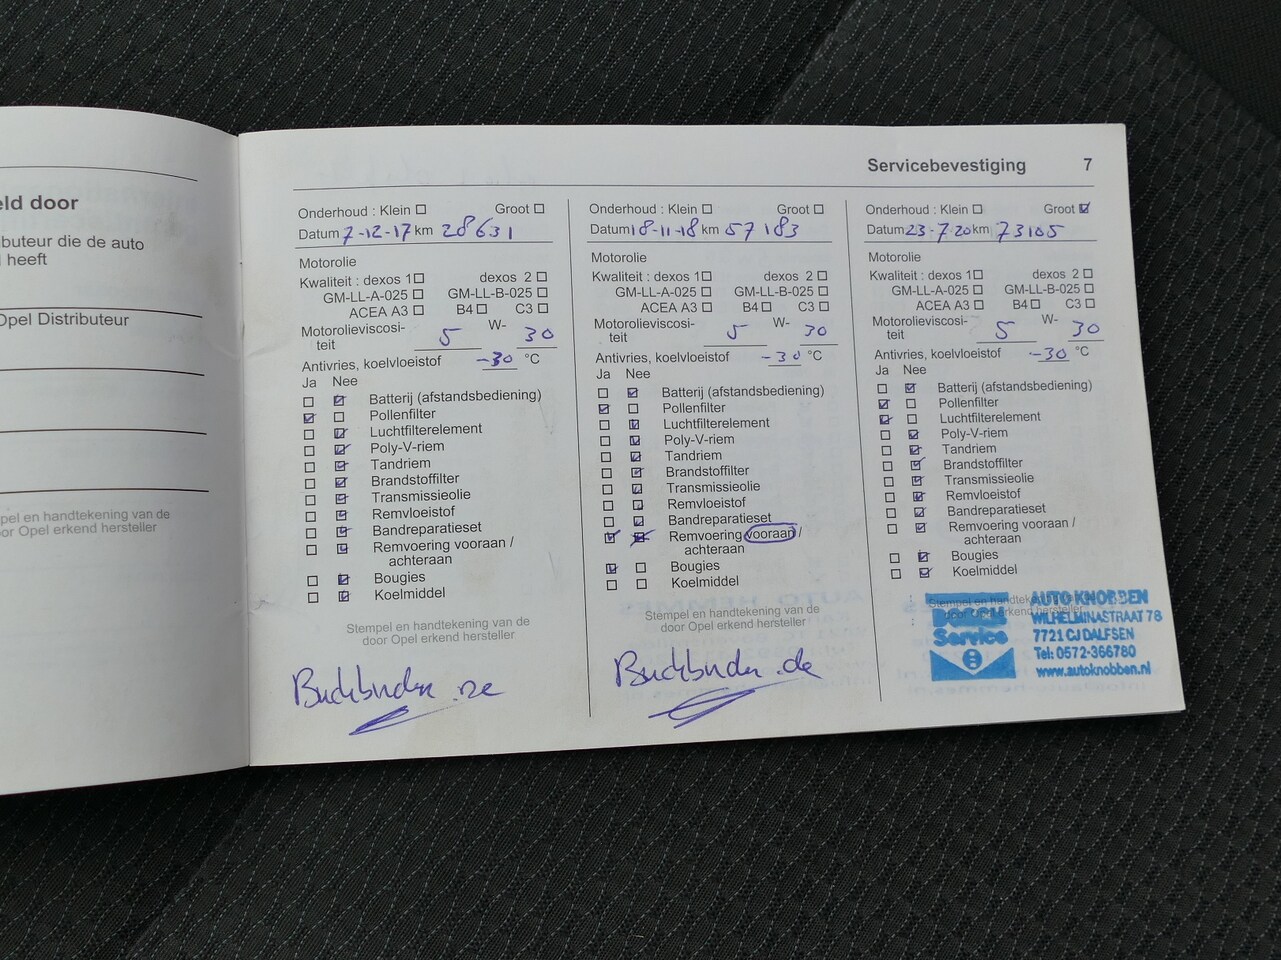 eld door
ibuteur die de auto
l heeft
Opel Distributeur
pel en handtekening van de
oor Opel erkend hersteller
Servicebevestiging 7
Onderhoud : Klein Groot
Datum 7-12-17 km 28631
Motorolie
Kwaliteit : dexos 1 dexos 2
GM-LL-A-025 GM-LL-B-025
ACEA A3 B4 C3
Motorolieviscosi-
teit 5 W- 30
Antivries, koelvloeistof -30 °C
Ja Nee
Batterij (afstandsbediening)
Pollenfilter
Luchtfilterelement
Poly-V-riem
Tandriem
Brandstoffilter
Transmissieolie
Remvloeistof
Bandreparatieset
Remvoering vooraan /
achteraan
Bougies
Koelmiddel
Stempel en handtekening van de
door Opel erkend hersteller
Onderhoud : Klein Groot
Datum 18-11-18 km 57183
Motorolie
Kwaliteit : dexos 1 dexos 2
GM-LL-A-025 GM-LL-B-025
ACEA A3 B4 C3
Motorolieviscosi-
teit 5 W- 30
Antivries, koelvloeistof -30 °C
Ja Nee
Batterij (afstandsbediening)
Pollenfilter
Luchtfilterelement
Poly-V-riem
Tandriem
Brandstoffilter
Transmissieolie
Remvloeistof
Bandreparatieset
Remvoering vooraan /
achteraan
Bougies
Koelmiddel
Stempel en handtekening van de
door Opel erkend hersteller
Onderhoud : Klein Groot
Datum 23-7-20 km 73105
Motorolie
Kwaliteit : dexos 1 dexos 2
GM-LL-A-025 GM-LL-B-025
ACEA A3 B4 C3
Motorolieviscosi-
teit 5 W- 30
Antivries, koelvloeistof -30 °C
Ja Nee
Batterij (afstandsbediening)
Pollenfilter
Luchtfilterelement
Poly-V-riem
Tandriem
Brandstoffilter
Transmissieolie
Remvloeistof
Bandreparatieset
Remvoering vooraan /
achteraan
Bougies
Koelmiddel
Stempel en handtekening van de
door Opel erkend hersteller
BOSCH
Service
AUTO KNOBBEN
WILHELMINASTRAAT 78
7721 CJ DALFSEN
Tel: 0572-366780
www.autoknobben.nl